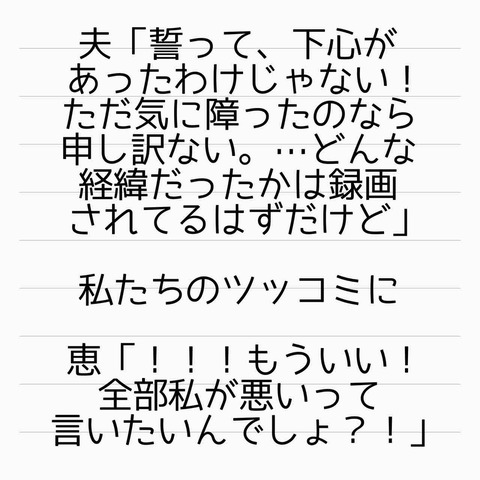 夫「誓って、下心が
あったわけじゃない！
ただ気に障ったのなら
申し訳ない。…どんな
経緯だったかは録画
されてるはずだけど」
私たちのツッコミに
恵「！！！もういい！
全部私が悪いって
言いたいんでしょ？！」